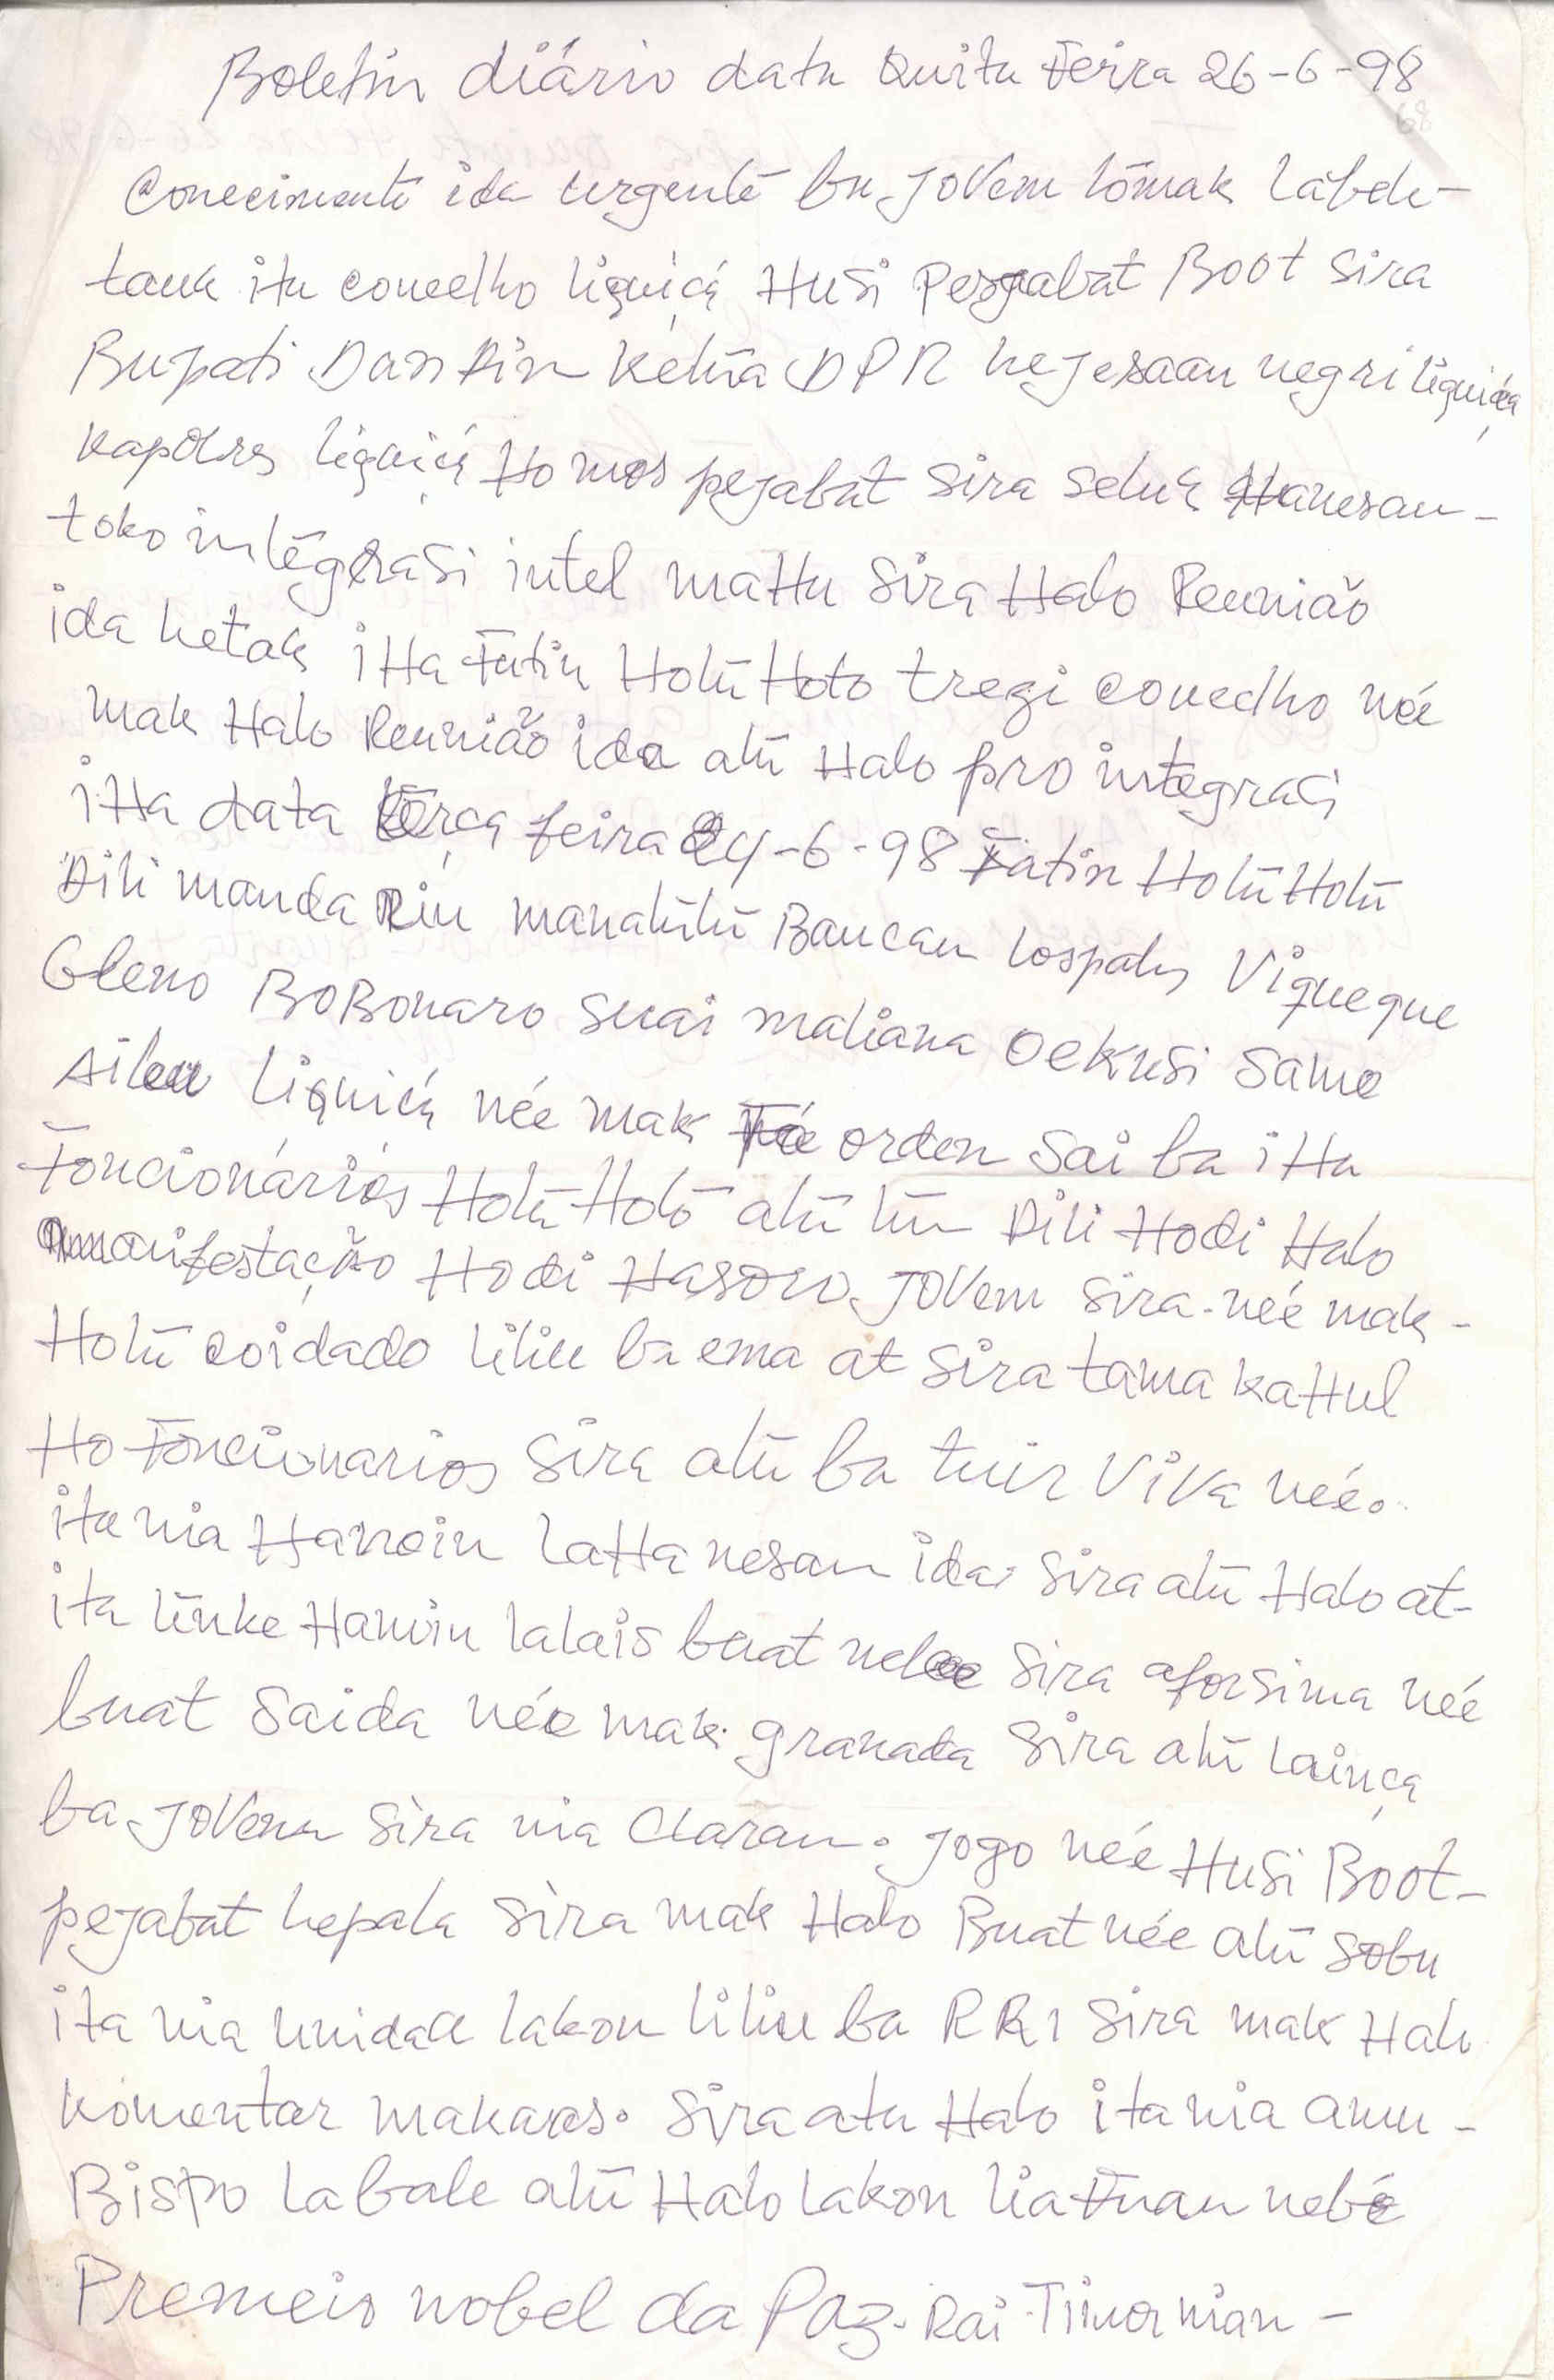 Boletin diário data Quita Feira 26-6-98
68
Conecimento ida urgente ba Jovem tômak labele-
tauk ita concelho liquiçá Husi Pesjabat Boot sira
Bupati Dan Din Ketua DPR kejesaan negri liquiça
Kapolres liquiçá Ho mos pejabat sira seluk Hanesan-
toko integrasi intel maHu sira Halo Reunião
ida ketak iHa Fatin Hotu Hoto tregi concelho née
mak Halo Reunião ida atu Halo pro integraci
iHa data terça feira 24-6-98 Fatin Hotu Hotu
Dili manda Rin manatutu Baucau lospalos Viqueque
Gleno BoBonaro Suai maliana Oekusi Same
Aileu Liquiçá née mak Fó orden sai ba iHa
Foncionários Hotu Hotó atu tun Dili Hodi Halo
manifestação Hodi Hasoro Jovem sira née mak-
Hotu coidado liliu ba ema at sira tama kaHul
Ho Foncionarios sira atu ba tuir Viva née.
ita nia Hanoin laHanesan ida sira atu Halo at-
ita tenke Hanoin lalais buat nebee sira aforsima née
buat saida née mak granada sira atu lainça
ba Jovem sira nia claran. Jogo née Husi Boot-
pejabat kepala sira mak Halo Buat née atu sobu
ita nia unidade lakon liliu ba RRI sira mak Halo
komentar makaas. sira atu Halo ita nia amu-
Bispo labale atu Halo lakon liaFuan nebé
Premeio nobel da Paz. Rai Timor nian-